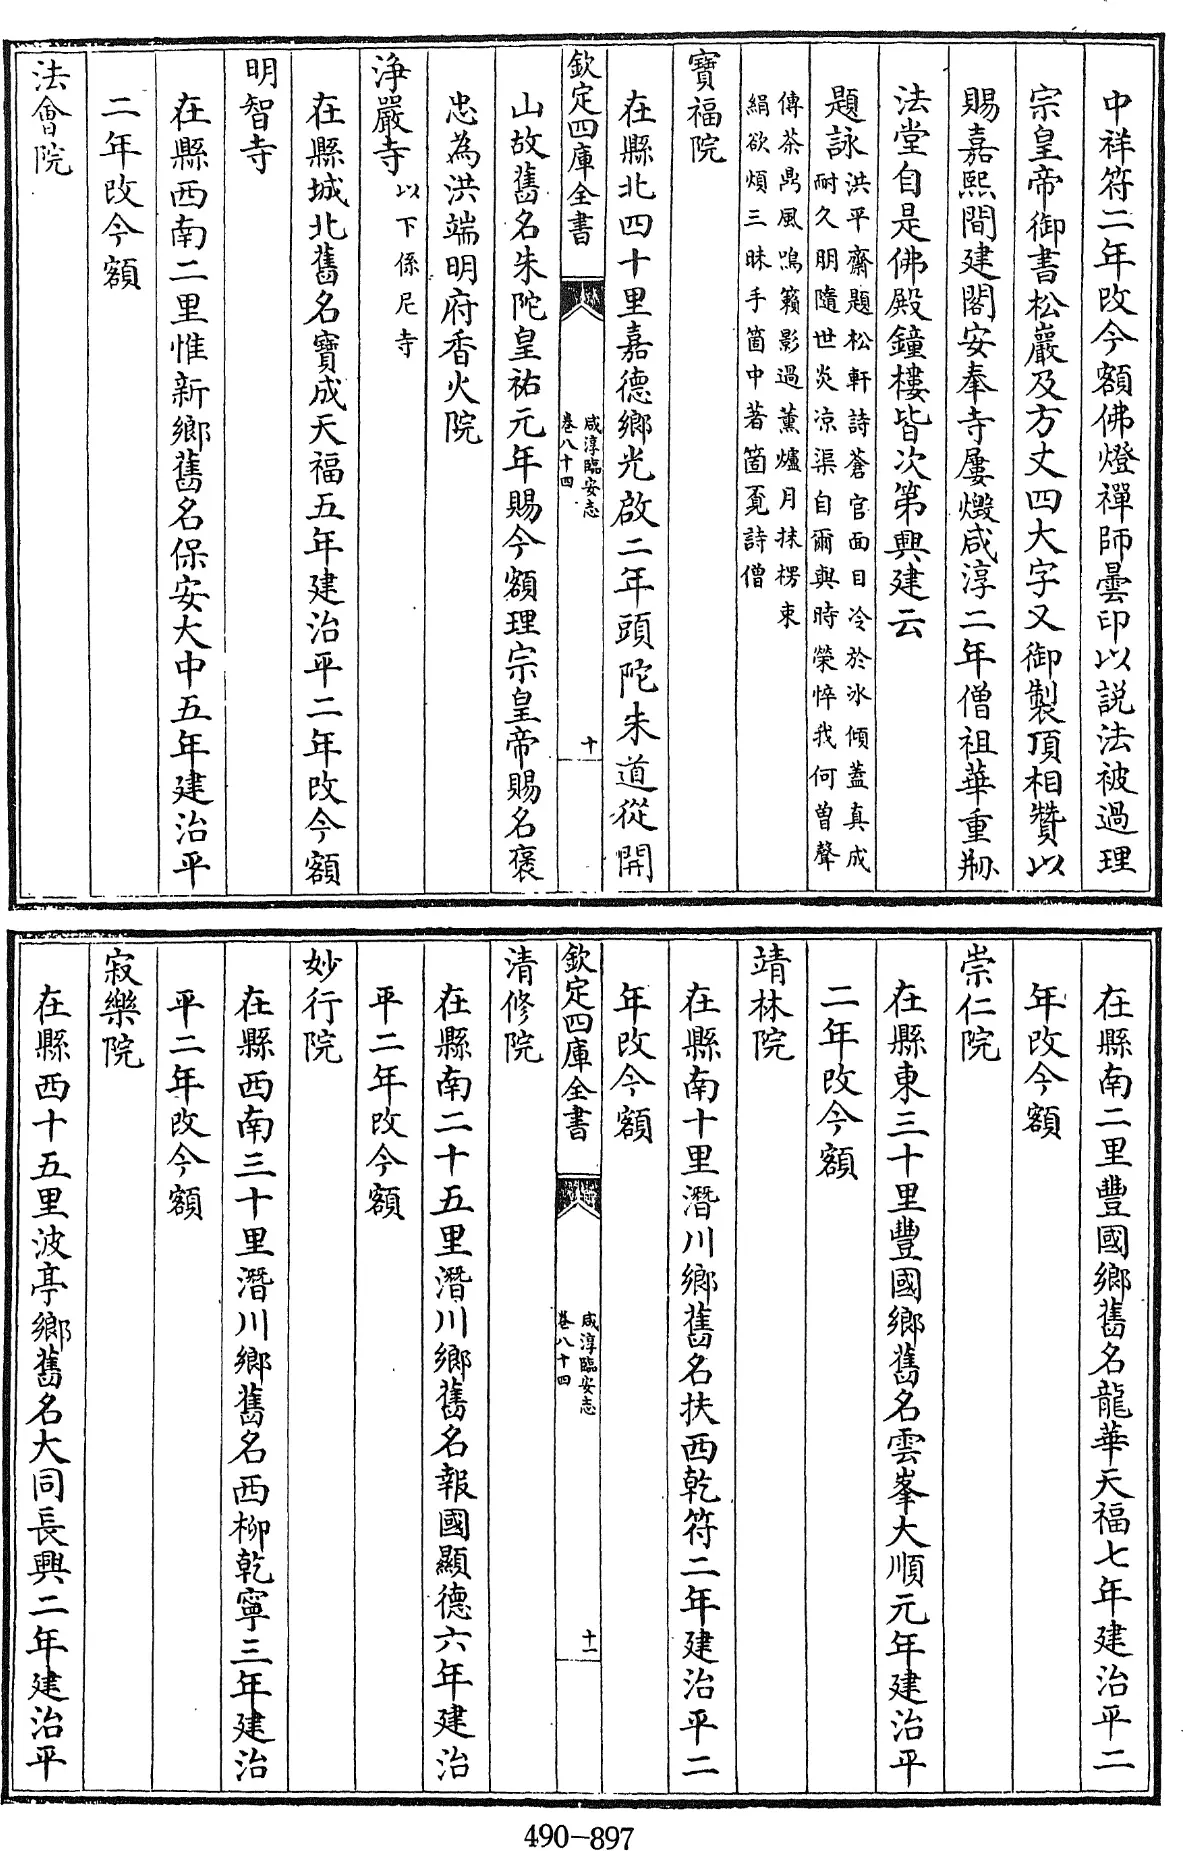 中祥符二年改今額佛燈禪師曇印以説法被過理
宗皇帝御書松巖及方丈四大字又御製頂相贊以
賜嘉熙間建閣安奉寺屢燬咸淳二年僧祖華重刱
法堂自是佛殿鐘樓皆次第興建云
題詠洪平齋題松軒詩蒼官面目冷於冰傾蓋真成
耐久朋隨世炎凉渠自爾與時榮悴我何曽聲
傳茶鼎風鳴籟影過薰爐月抹楞東
絹欲煩三昧手箇中著箇覔詩僧
寶福院
在縣北四十里嘉德鄉光啟二年頭陀朱道從開
欽定四庫全書
咸淳臨安志
卷八十四
十
山故舊名朱陀皇祐元年賜今額理宗皇帝賜名褒
忠為洪端明府香火院
淨嚴寺以下係尼寺
在縣城北舊名寶成天福五年建治平二年改今額
明智寺
在縣西南二里惟新鄉舊名保安大中五年建治平
二年改今額
法會院
在縣南二里豐國鄉舊名龍華天福七年建治平二
年改今額
崇仁院
在縣東三十里豐國鄉舊名雲峯大順元年建治平
二年改今額
靖林院
在縣南十里潛川鄉舊名扶西乾符二年建治平二
年改今額
欽定四庫全書
咸淳臨安志
卷八十四
十一
清修院
在縣南二十五里潛川鄉舊名報國顯德六年建治
平二年改今額
妙行院
在縣西南三十里潛川鄉舊名西柳乾寧三年建治
平二年改今額
寂樂院
在縣西十五里波亭鄉舊名大同長興二年建治平
490-897